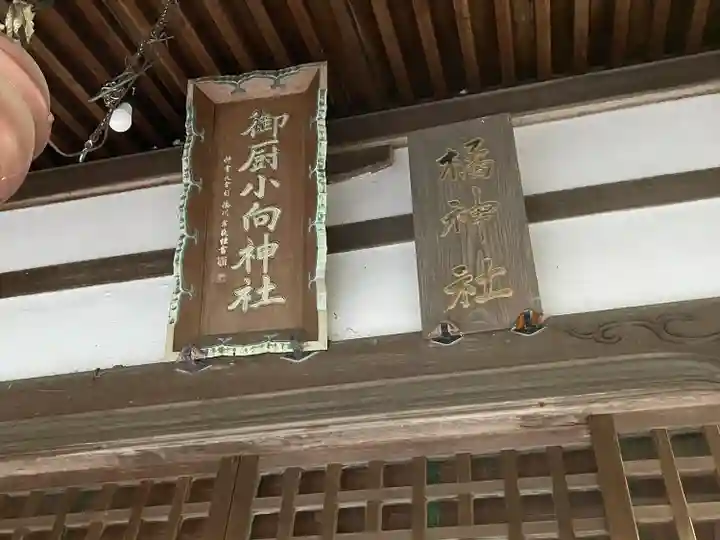 御厨小向神社
橘神社